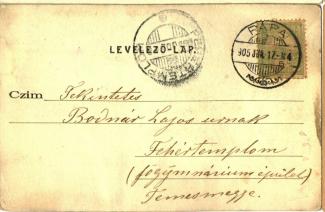 LEVELEZŐ-LAP.
PÁPA
905
Czim Tekintetes
Bodnár Lajos urnak
Fehértemplom
(főgymnásium épület)
Temesmegye.